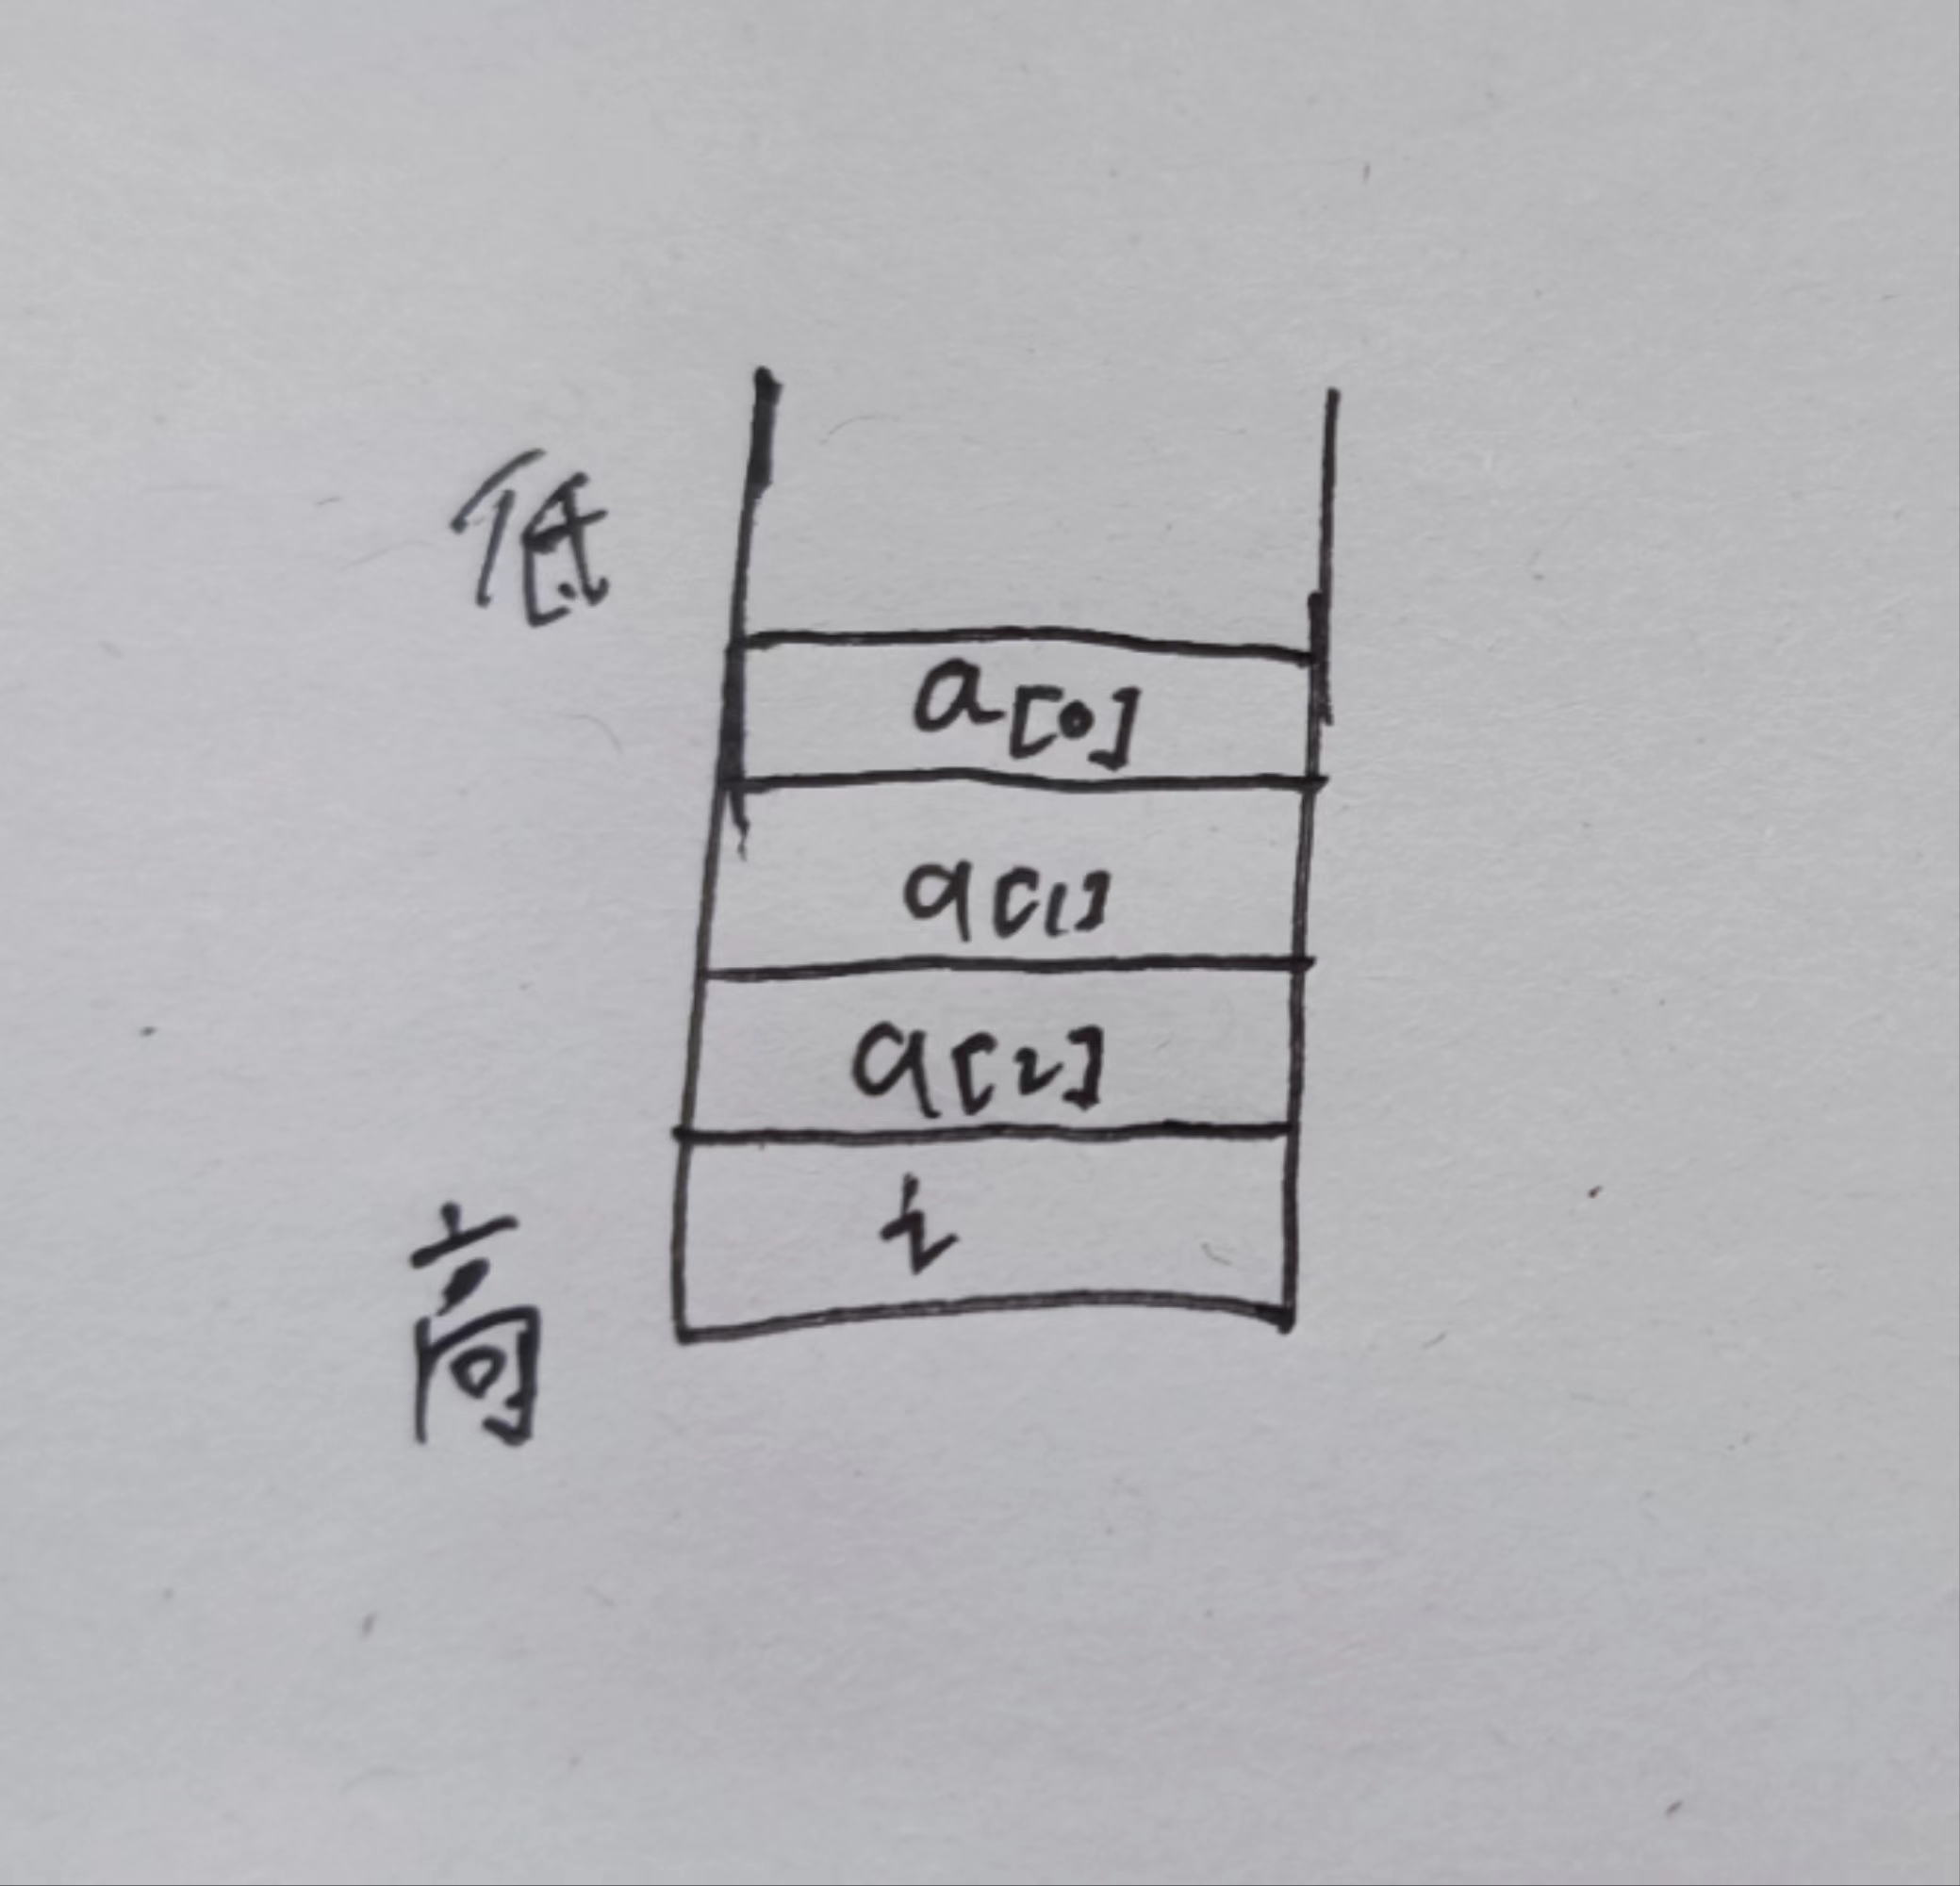 低
a[0]
a[1]
a[2]
i
高